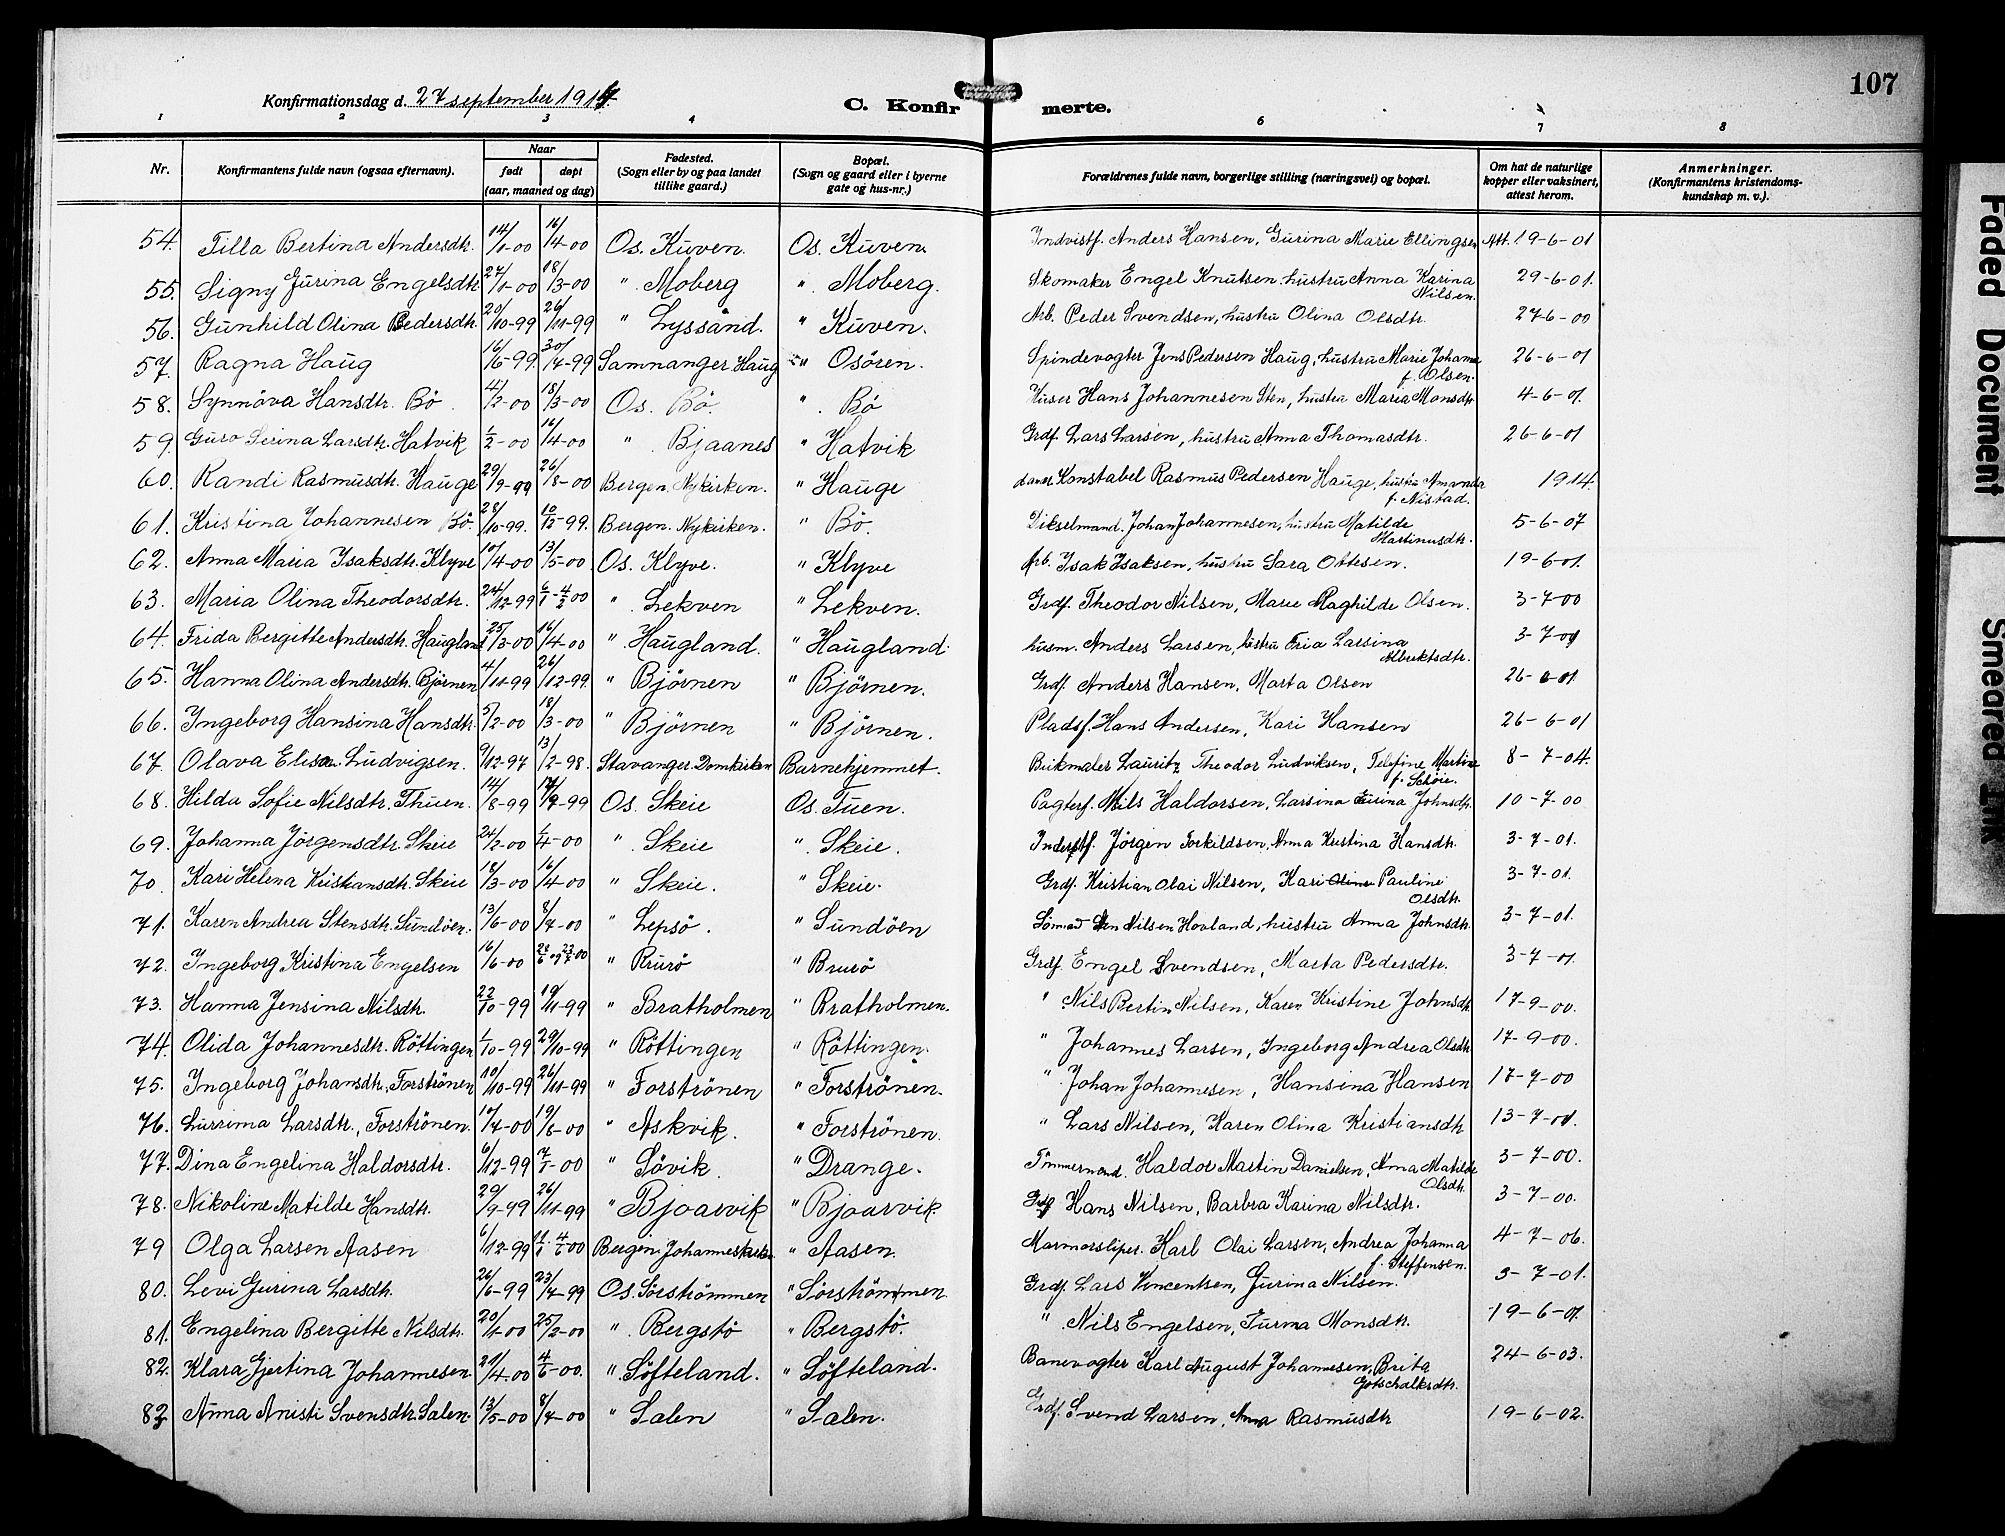 107
Konfirmationsdag d. 27 september 1914
C. Konfir merte.
1 2 3 4 5 6 7 8
Nr. Konfirmantens fulde navn (ogsaa efternavn). Naar født døpt (aar, maaned og dag) Fødested. (Sogn eller by og paa landet tillike gaard.) Bopæl. (Sogn og gaard eller i byerne gate og hus-nr.) Forældrenes fulde navn, borgerlige stilling (næringsvei) og bopæl. Om hat de naturlige kopper eller vaksinert, attest herom. Anmerkninger. (Konfirmantens kristendoms-kundskap m. v.).
54. Tilla Bertina Andersdtr. 14/1-00 16/4-00 Os. Kuven. Os. Kuven. Indvistf. Anders Hansen, Gurina Marie Ellingsen Att. 19-6-01
55. Signy Gurina Engelsdtr. 27/1-00 18/3-00 " Moberg " Moberg. Skomaker Engel Knutsen, hustru Anna Karina Nilsen. 29-6-01.
56. Gunhild Olina Pedersdtr. 20/10-99 26/11-99 " Lyssand. " Kuven. Arb. Peder Svendsen, hustru Olina Olsdtr. 27-6-00
57. Ragna Haug 16/6-99 30/7-99 Samnanger Haug " Osören. Spindevogter Jens Pedersen Haug, hustru Marie Johanna f. Olsen. 26-6-01
58. Synnöva Hansdtr. Bö. 4/2-00 18/3-00 Os. Bö. " Bö Huser Hans Johannesen Sten, hustru Maria Monsdtr 4-6-01.
59. Guro Serina Larsdtr. Hatvik 1/2-00 16/4-00 " Bjaanes " Hatvik Grdf. Lars Larsen, hustru Anna Thomasdtr. 26-6-01
60. Randi Rasmusdtr. Hauge 29/9-99 26/8-00 Bergen. Nykirken. " Hauge Konstabel Rasmus Pedersen Hauge, hustru Amanda f. Nistad. 1914.
61. Kristina Johannesen Bö. 28/10-99. 10/12-99. Bergen. Nykirken. " Bö. Dikselmand. Johan Johannesen, hustru Matilde Martinusdtr. 5-6-07
62. Anna Maria Isaksdtr. Klyve 10/4-00 13/5-00 Os. Klyve. " Klyve Arb. Isak Isaksen, hustru Sara Ottesen. 19-6-01.
63. Maria Olina Theodorsdtr. 24/12-99 6/1 - 4/2 00 " Lekven " Lekven. Grdf. Theodor Nilsen, Marie Raghilde Olsen. 3-7-00
64. Frida Bergitte Andersdtr. Haugland 25/3-00 16/4-00 " Haugland. " Haugland. husm. Anders Larsen, hustru Eria Larsina Albriktsdtr. 3-7-01
65. Hanna Olina Andersdtr. Björnen 4/11-99 26/12-99. " Björnen " Björnen. Grdf. Anders Hansen, Marta Olsen 26-6-01
66. Ingeborg Hansina Hansdtr. 5/2-00 18/3-00 " Björnen " Björnen. Pladsf. Hans Andersen, Kari Hansen 26-6-01
67. Olava Elisa Ludvigsen. 9/12-97 13/2-98. Stavanger. Domkirken Barnehjemmet. Lauritz Theodor Ludviksen, Telefine Martine f. Schöie. 8-7-04.
68. Hilda Sofie Nilsdtr. Thuen. 14/8-99 17/9-99 Os. Skeie Os. Tuen. Pagterf. Nils Haldorsen, Larsina Eurina Johnsdtr. 10-7-00
69. Johanna Jörgensdtr. Skeie 24/2-00 1/4-00 " Skeie " Skeie. Inderstf. Jörgen Torkildsen, Anna Kristina Hansdtr. 3-7-01.
70. Kari Helena Kristiansdtr. Skeie 18/3-00 16/4-00 " Skeie. " Skeie. Grdf. Kristian Olai Nilsen, Kari Oline Pauline Olsdtr. 3-7-01.
71. Karen Andrea Stensdtr. Sundöen. 13/6-00 8/7-00 " Lepsö. " Sundöen Sten Nilsen Hovland, hustru Anna Johnsdtr. 3-7-01.
72. Ingeborg Kristina Engelsen 16/6-00 " Brurö " Brurö Grdf. Engel Svendsen, Marta Pedersdtr. 3-7-01.
73. Hanna Jensina Nilsdtr. 22/10-99 19/11-99 " Bratholmen " Bratholmen. " Nils Bertin Nilsen, Karen Kristine Johnsdtr 17-9-00.
74. Olida Johannesdtr. Röttingen 1/10-99 29/10-99 " Röttingen " Röttingen. " Johannes Larsen, Ingeborg Andrea Olsdtr. 17-9-00.
75. Ingeborg Johansdtr. Forströnen 10/10-99 26/11-99 " Forströnen " Forströnen. " Johan Johannesen, Hansina Hansen 17-7-00
76. Larsdtr., Forströnen. 10/4-00 19/8-00 " Askvik. " Forströnen. " Lars Nilsen, Karen Olina Kristiansdtr 13-7-01.
77. Dina Engelina Haldorsdtr. 6/12-99 7/1-00 " Sövik. " Drange. Tömmermand. Haldor Martin Danielsen, Anna Matilde Olsdtr. 3-7-00.
78. Nikoline Matilde Hansdtr. 29/9-99 26/11-99 " Bjoarvik " Bjoarvik. Grdf Hans Nilsen, Barbra Karina Nilsdtr. 3-7-00.
79 Olga Larsen Aasen 6/12-99 Bergen. Johanneskirken " Aasen. Marmorsliper. Karl Olai Larsen, Andrea Johanna f. Steffensen. 4-7-06.
80. Levi Gurina Larsdtr. 26/6-99 23/7-99 Os. Sörströmmen " Sörströmmen. Grdf. Lars Vincentsen, Gurina Nilsen. 3-7-01.
81. Engelina Bergitte Nilsdtr. 20/1-00 25/2-00 " Bergstö " Bergstö. " Nils Engelsen, Monsdtr. 19-6-01
82. Klara Gjertina Johannesen 21/4-00 4/6-00. " Söfteland. " Söfteland. Banevogter Karl August Johannesen, Brita Gotschalksdtr. 24-6-03.
83 Anna Anisti Svensdtr. Salen. 13/5-00 8/7-00 " Salen " Salen. Grdf. Svend Larsen, Anna Rasmusdtr 19-6-02.
Faded Document
Smeared Ink